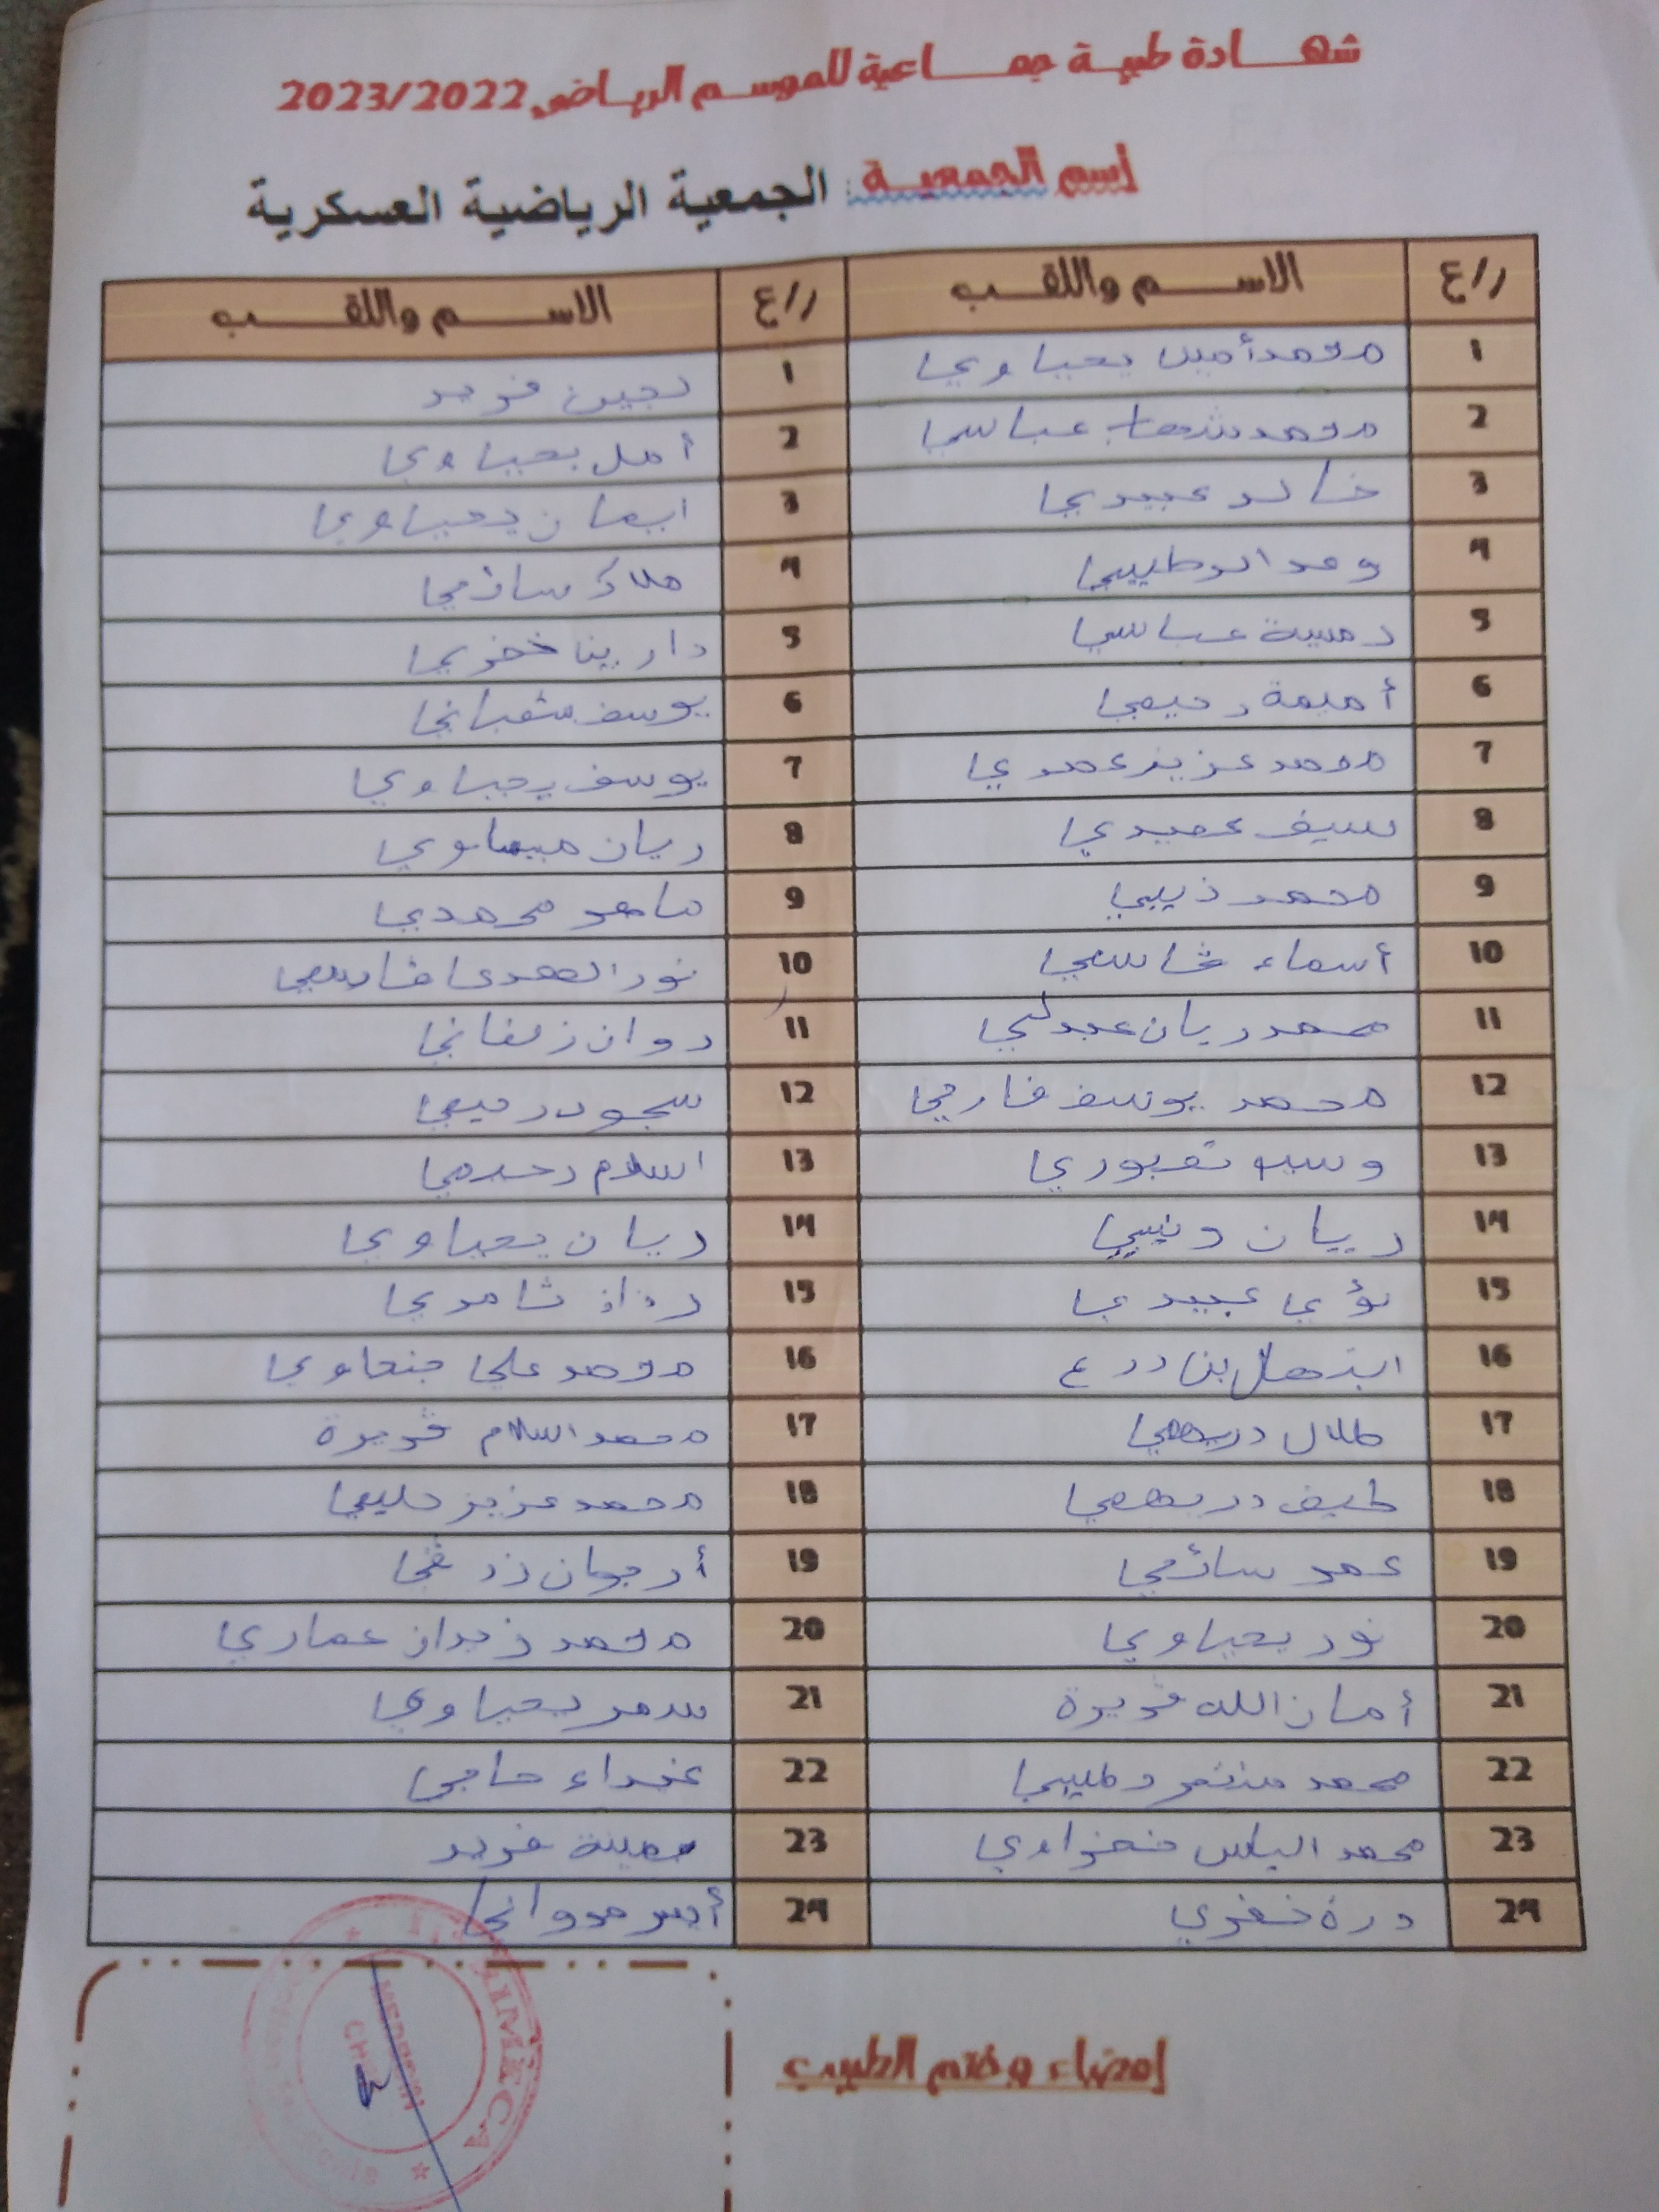 شهادة طبية جماعية للموسم الرياضي 2023/2022
إسم الجمعية : الجمعية الرياضية العسكرية
ر/ع الاسم واللقب ر/ع الاسم واللقب
1 محمد أمين يحياوي 1 لجين فريد
2 محمد شهاب عباسي 2 أمل يحياوي
3 خالد عبيدي 3 ايمان يحياوي
4 وعد الرطيبي 4 ملاك سالمي
5 رميسة عباسي 5 دارين خضري
6 أميمة رحيمي 6 يوسف شعباني
7 محمد عزيز عمري 7 يوسف يحياوي
8 سيف عميدي 8 ريان
9 محمد ذيبي 9 ماهر محمدي
10 أسماء قاسمي 10 نور الهدى قاسمي
11 محمد ريان عبدلي 11 روان زلفاني
12 محمد يوسف فارحي 12 سجود رحيمي
13 13 اسلام رحيمي
14 ريان 14 ريان يحياوي
15 لؤي عبيدي 15 رزان ثامري
16 ابتهال بن 16 محمد علي
17 طلال دريهمي 17 محمد اسلام قريرة
18 طيف دريهمي 18 محمد عزيز حليمي
19 عمر سالمي 19 أرجوان زرقي
20 نور يحياوي 20 محمد عماري
21 أمان الله قريرة 21 سمر يحياوي
22 محمد منتصر رطيبي 22 غيداء حاجي
23 محمد الياس نفزاوي 23 فريد
24 درة خضري 24 مرواني
إمضاء وختم الطبيب